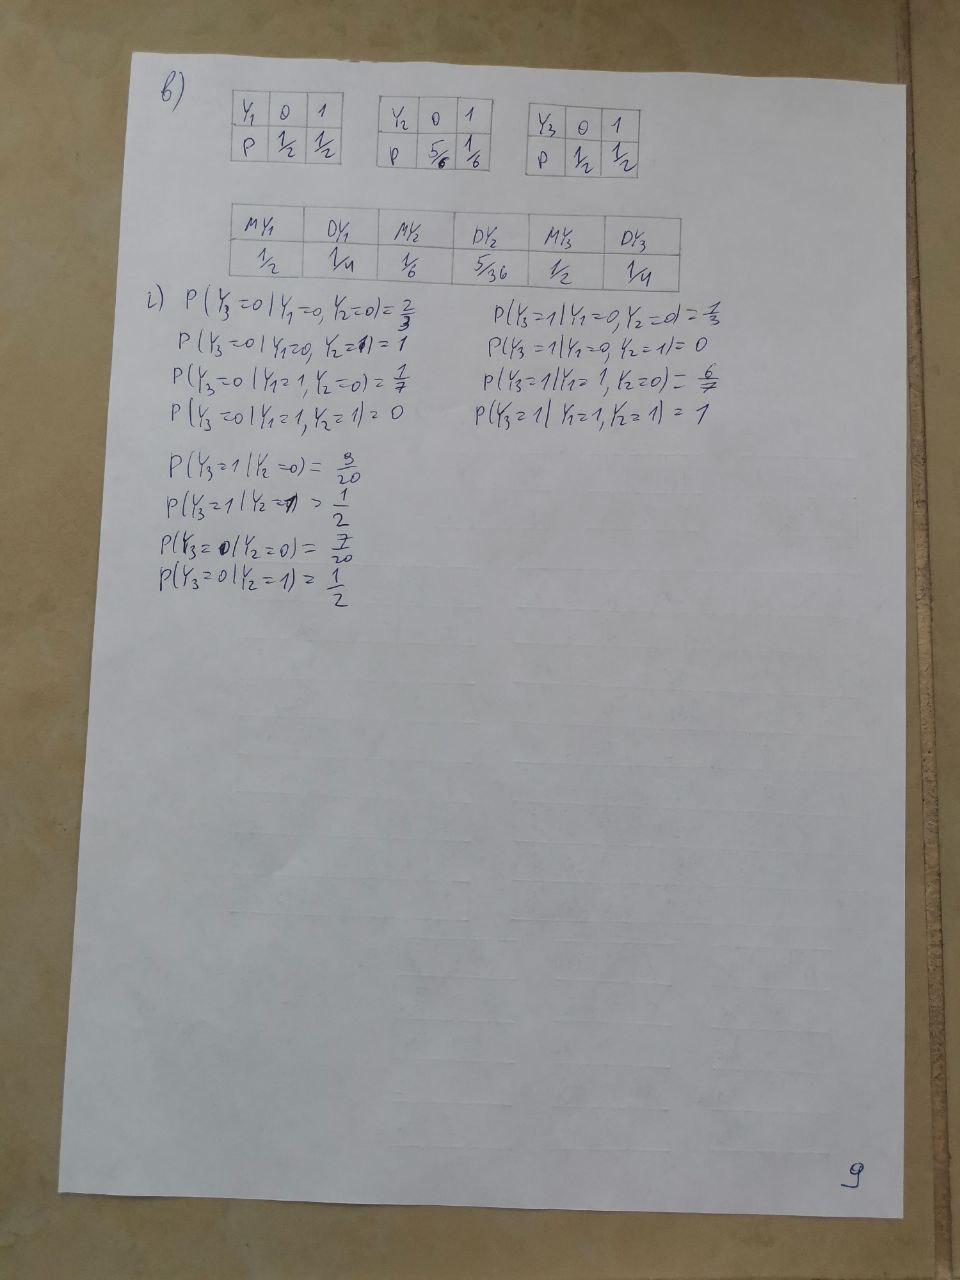 в)
Y₁ 0 1
P 1/2 1/2
Y₂ 0 1
P 5/6 1/6
Y₃ 0 1
P 1/2 1/2
MY₁ DY₁ MY₂ DY₂ MY₃ DY₃
1/2 1/4 1/6 5/36 1/2 1/4
г) P(Y₃=0|Y₁=0, Y₂=0)=2/3 P(Y₃=1|Y₁=0, Y₂=0)=1/3
P(Y₃=0|Y₁=0, Y₂=1)=1 P(Y₃=1|Y₁=0, Y₂=1)=0
P(Y₃=0|Y₁=1, Y₂=0)=1/7 P(Y₃=1|Y₁=1, Y₂=0)=6/7
P(Y₃=0|Y₁=1, Y₂=1)=0 P(Y₃=1|Y₁=1, Y₂=1)=1
P(Y₃=1|Y₂=0)=9/20
P(Y₃=1|Y₂=1)=1/2
P(Y₃=0|Y₂=0)=7/20
P(Y₃=0|Y₂=1)=1/2
9